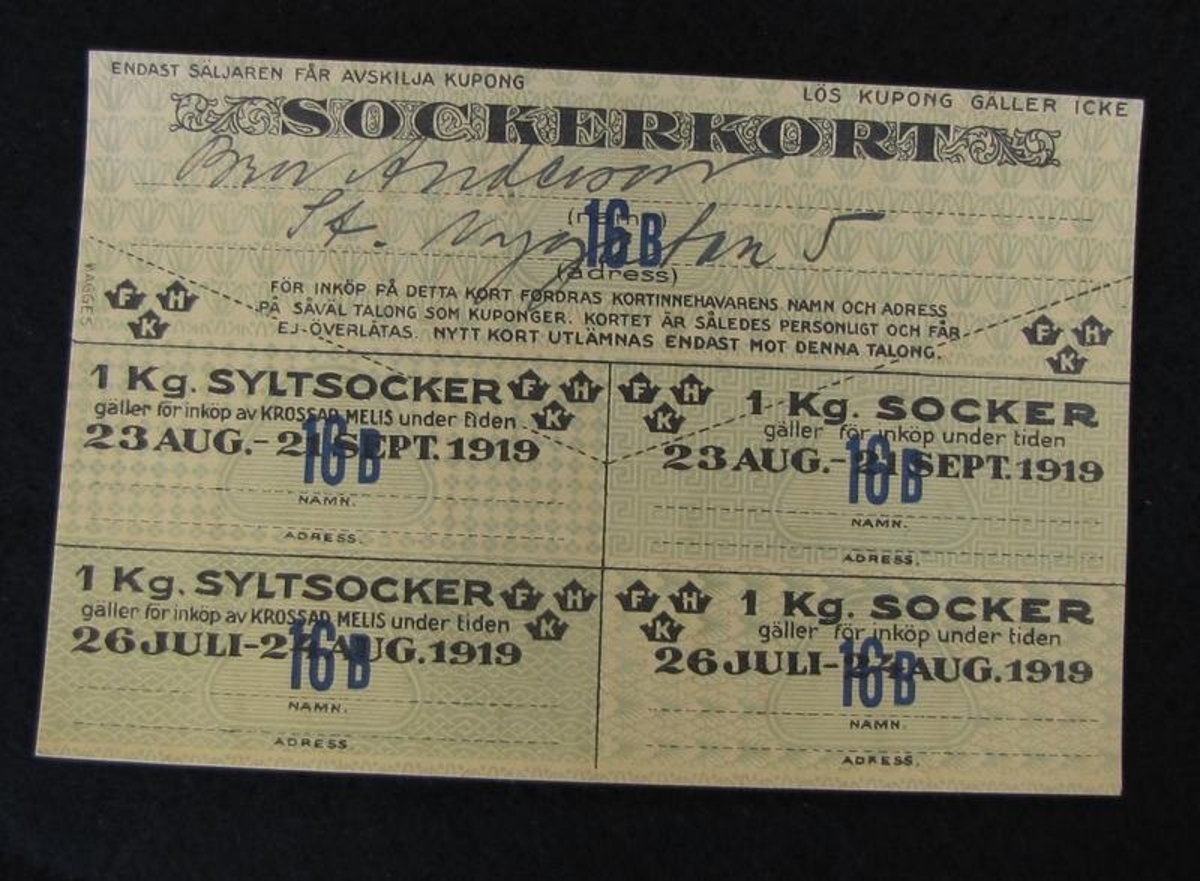 ENDAST SÄLJAREN FÅR AVSKILJA KUPONG
LÖS KUPONG GÄLLER ICKE
SOCKERKORT
Anderson
(namn)
16 B
St. Nygatan 5
(adress)
KAGGES
F H K
FÖR INKÖP PÅ DETTA KORT FORDRAS KORTINNEHAVARENS NAMN OCH ADRESS
PÅ SÅVÄL TALONG SOM KUPONGER. KORTET ÄR SÅLEDES PERSONLIGT OCH FÅR
EJ ÖVERLÅTAS. NYTT KORT UTLÄMNAS ENDAST MOT DENNA TALONG.
F H K
1 Kg. SYLTSOCKER F H K
gäller för inköp av KROSSAD MELIS under tiden
23 AUG.-21 SEPT. 1919
16 B
NAMN.
ADRESS.
F H K 1 Kg. SOCKER
gäller för inköp under tiden
23 AUG.-21 SEPT. 1919
16 B
NAMN.
ADRESS.
1 Kg. SYLTSOCKER F H K
gäller för inköp av KROSSAD MELIS under tiden
26 JULI-24 AUG. 1919
16 B
NAMN.
ADRESS
F H K 1 Kg. SOCKER
gäller för inköp under tiden
26 JULI-24 AUG. 1919
16 B
NAMN.
ADRESS.